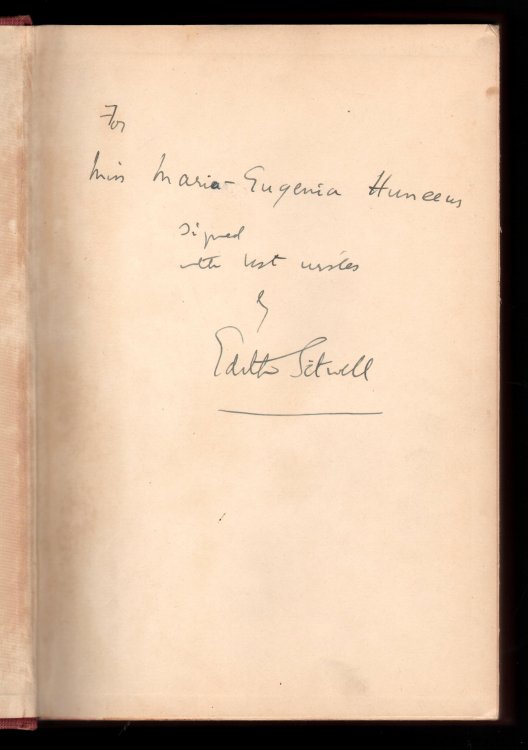 For
Miss Maria-Eugenia Huneeus
signed
with best wishes
by
Edith Sitwell